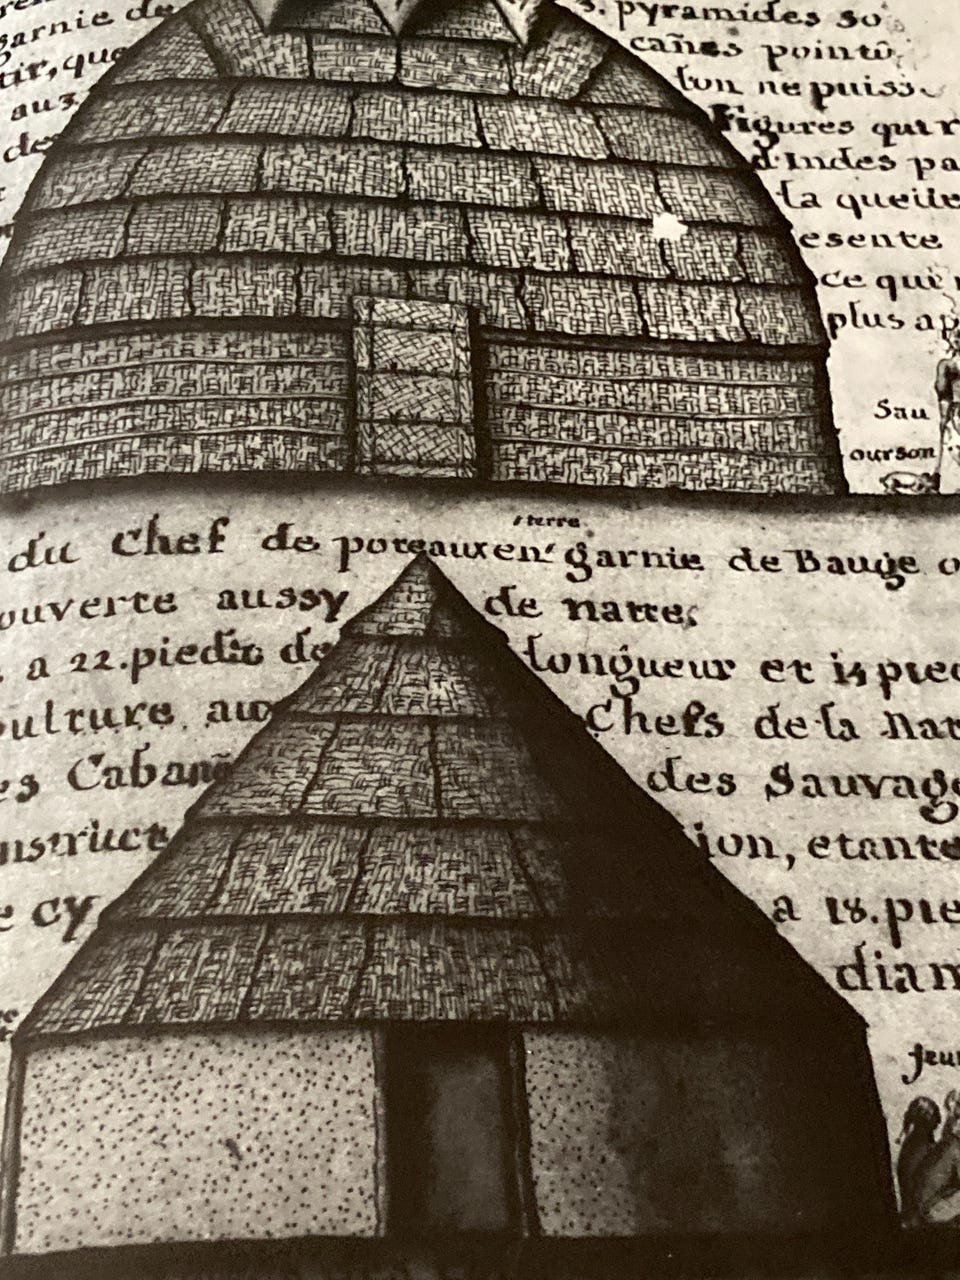 garnie de 3. pyramides so
tir, que cañes pointu
aux lon ne puiss
des figures qui r
d'Indes pa
la queüe
esente
ce qui
plus ap
Sau
ourson
du Chef de poteaux en terre garnie de Bauge o
ouverte aussy de natte,
a 22. pieds de longueur et 14 pied
pulture aux Chefs de la Nat
es Cabane des Sauvage
nstruct ion, etante
e cy a 18. pie
diam
feu